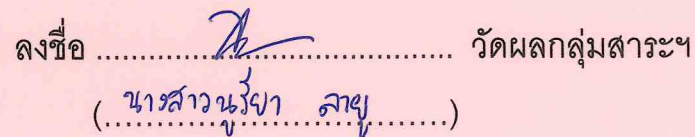 ลงชื่อ ........................................ วัดผลกลุ่มสาระฯ
(นางสาวนูรียา ลายู)